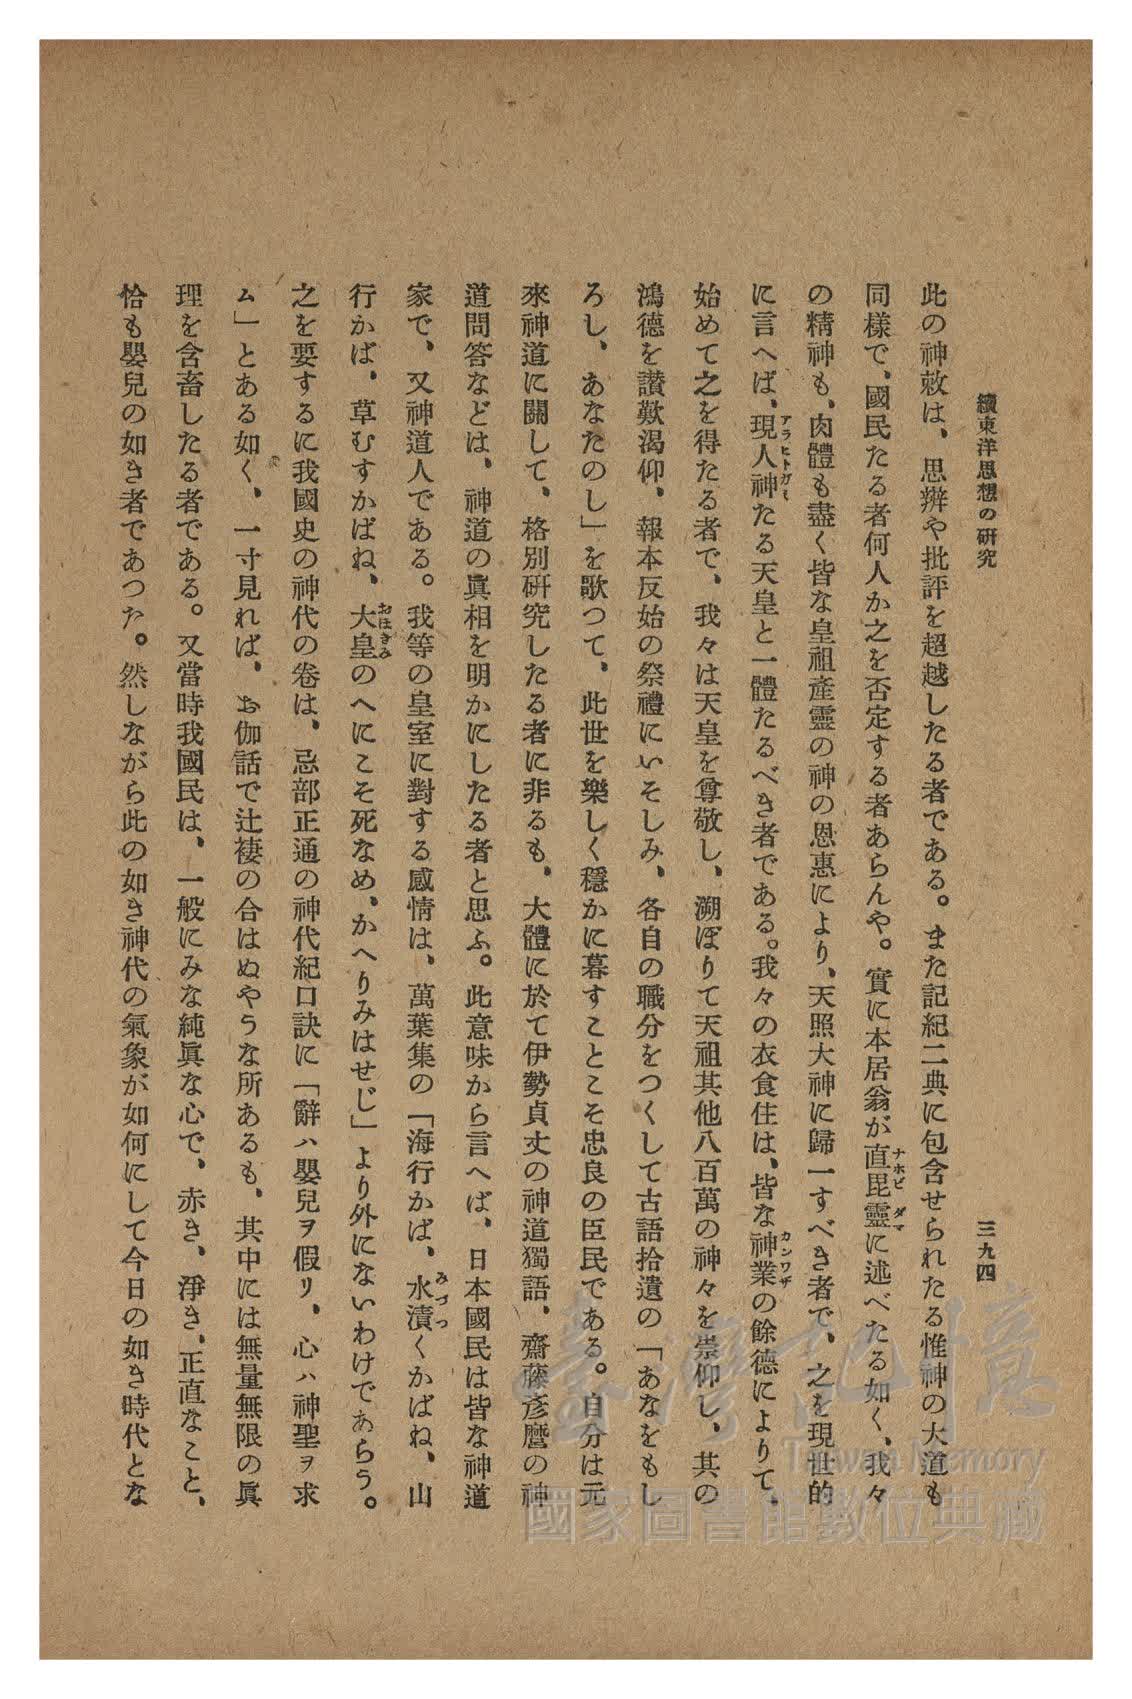 續東洋思想の研究
三九四
此の神敕は、思辨や批評を超越したる者である。また記紀二典に包含せられたる惟神の大道も
同樣で、國民たる者何人か之を否定する者あらんや。實に本居翁が直毘靈に述べたる如く、我々
ナホビダマ
の精神も、肉體も盡く皆な皇祖產靈の神の恩惠により、天照大神に歸一すべき者で、之を現世的
に言へば、現人神たる天皇と一體たるべき者である。我々の衣食住は、皆な神業の餘德によりて、
アラヒトガミ
カンワザ
始めて之を得たる者で、我々は天皇を尊敬し、溯ぼりて天祖其他八百萬の神々を崇仰し、其の
鴻德を讃歎渴仰、報本反始の祭禮にいそしみ、各自の職分をつくして古語拾遺の「あなをもし
ろし、あなたのし」を歌つて、此世を樂しく穩かに暮すことこそ忠良の臣民である。自分は元
來神道に關して、格別研究したる者に非るも、大體に於て伊勢貞丈の神道獨語、齋藤彥麿の神
道問答などは、神道の眞相を明かにしたる者と思ふ。此意味から言へば、日本國民は皆な神道
家で、又神道人である。我等の皇室に對する感情は、萬葉集の「海行かば、水漬くかばね、山
みづつ
行かば、草むすかばね、大皇のへにこそ死なめ、かへりみはせじ」より外にないわけであらう。
おほきみ
之を要するに我國史の神代の卷は、忌部正通の神代紀口訣に「辭ハ嬰兒ヲ假リ、心ハ神聖ヲ求
ム」とある如く、一寸見れば、お伽話で辻褄の合はぬやうな所あるも、其中には無量無限の眞
理を含畜したる者である。又當時我國民は、一般にみな純眞な心で、赤き、淨き、正直なこと、
恰も嬰兒の如き者であつた。然しながら此の如き神代の氣象が如何にして今日の如き時代とな
臺灣記憶
Taiwan Memory
國家圖書館數位典藏